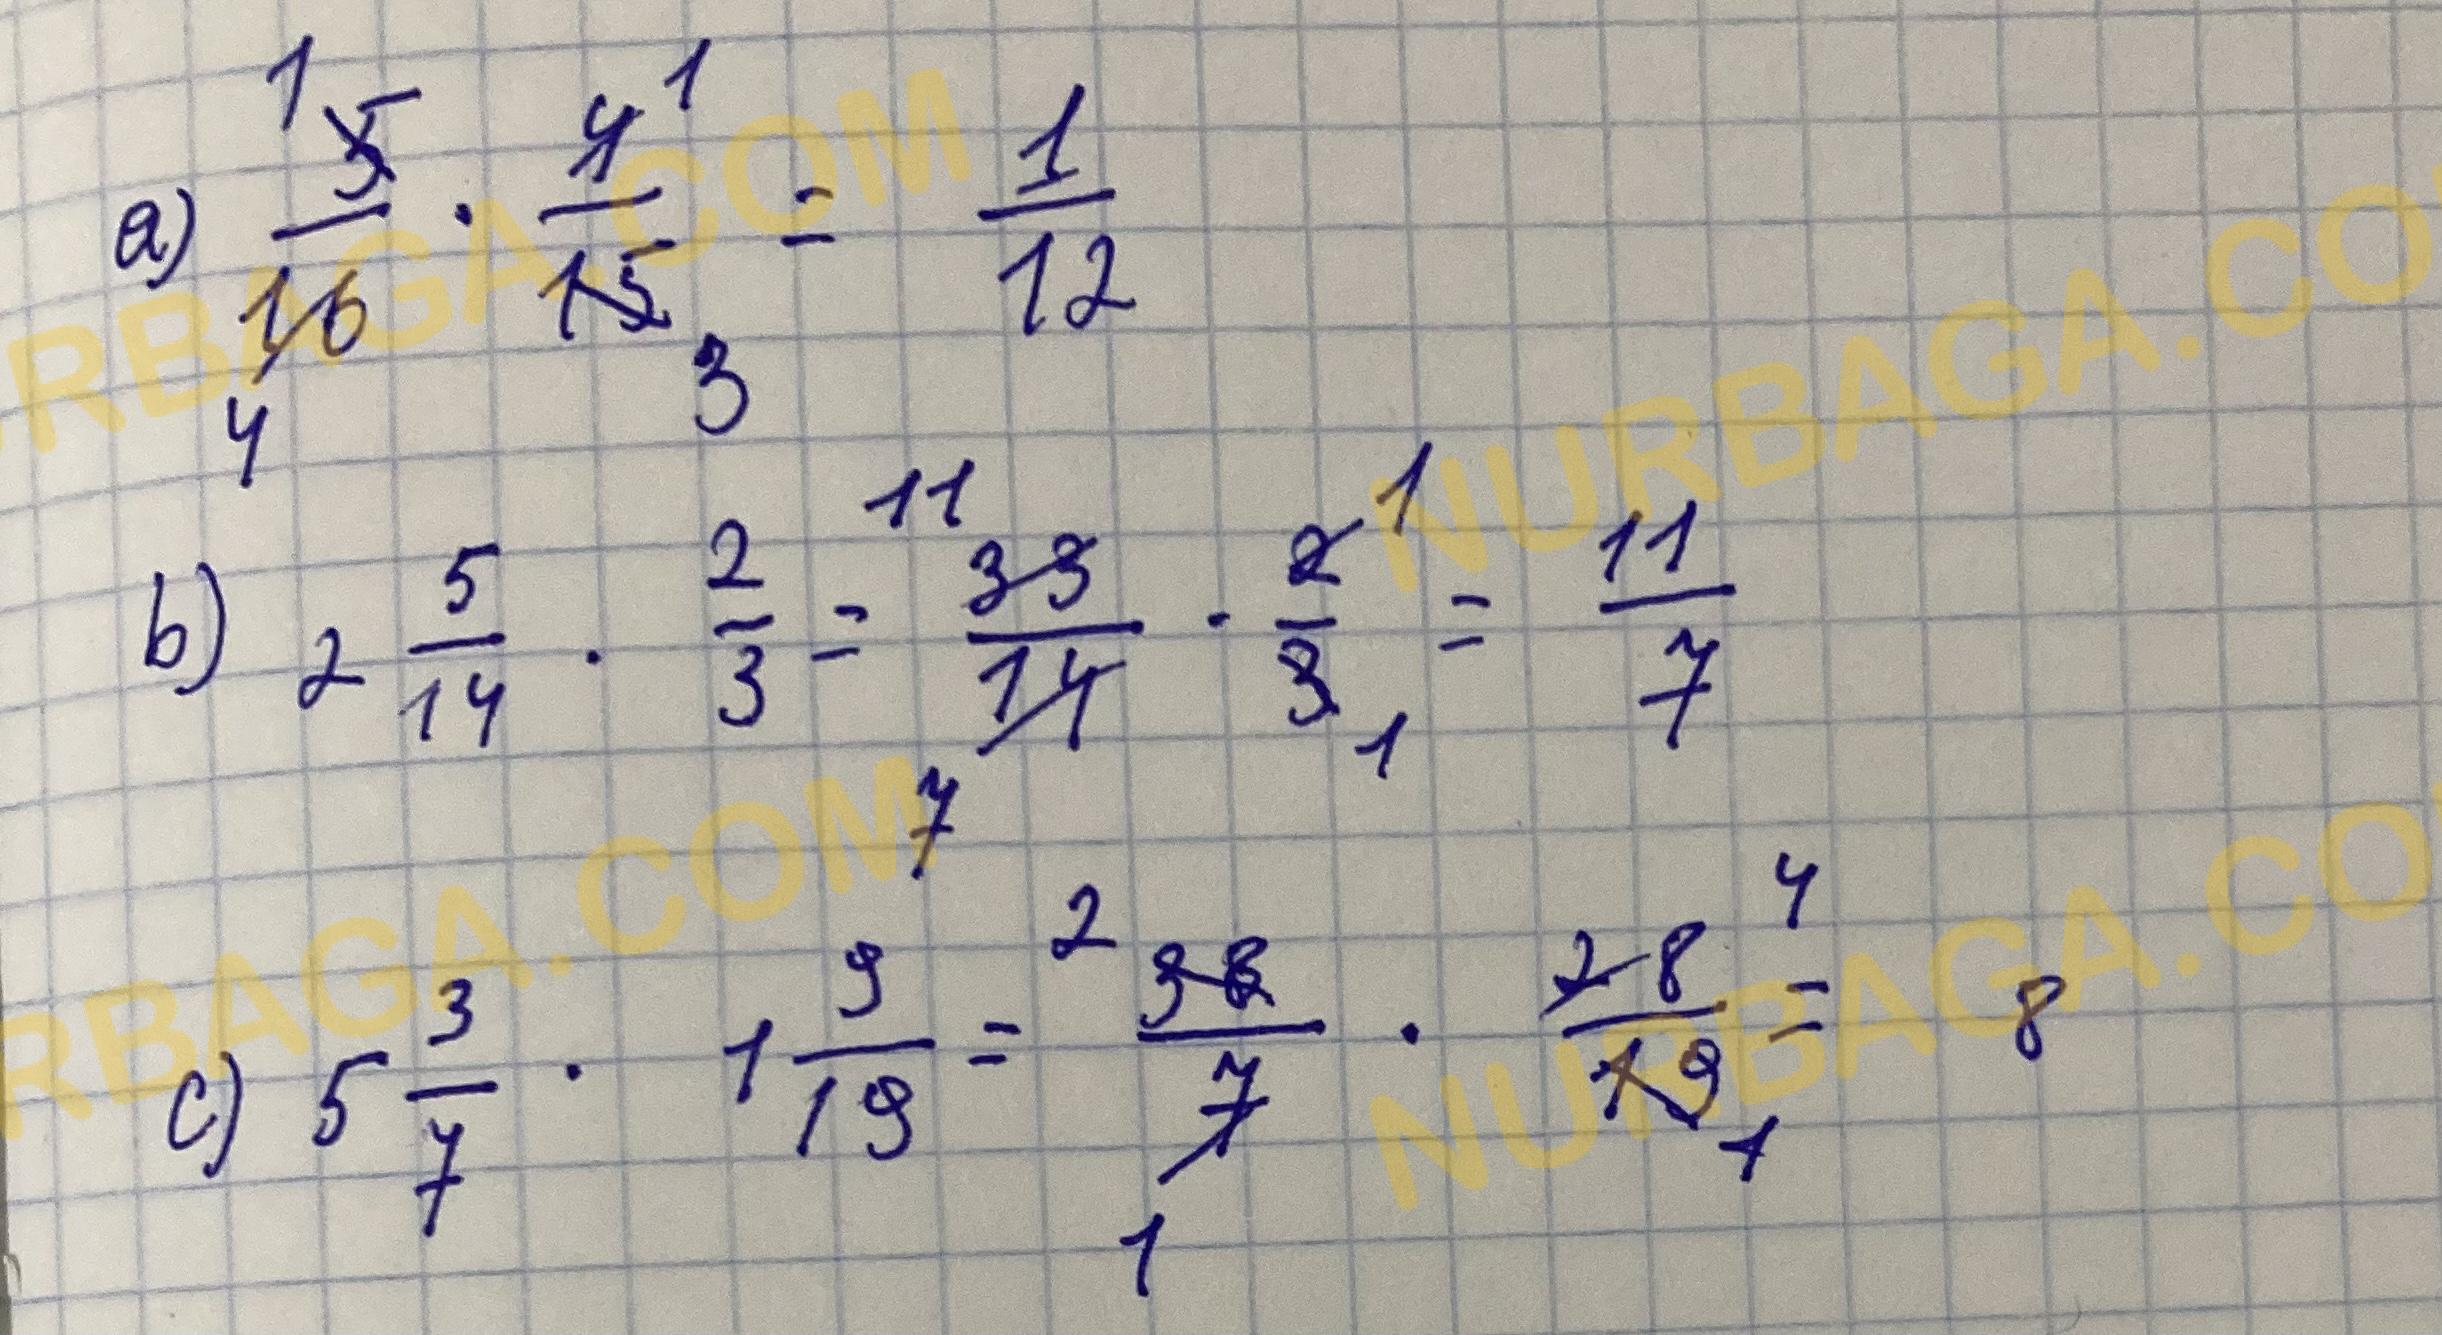 a) 5/16 · 4/15 = 1/12
1 1
4 3
b) 2 5/14 · 2/3 = 33/14 · 2/3 = 11/7
11 1
7 1
c) 5 3/7 · 1 9/19 = 38/7 · 28/19 = 8
2 4
1 1
NURBAGA.COM
NURBAGA.COM
NURBAGA.COM
NURBAGA.COM